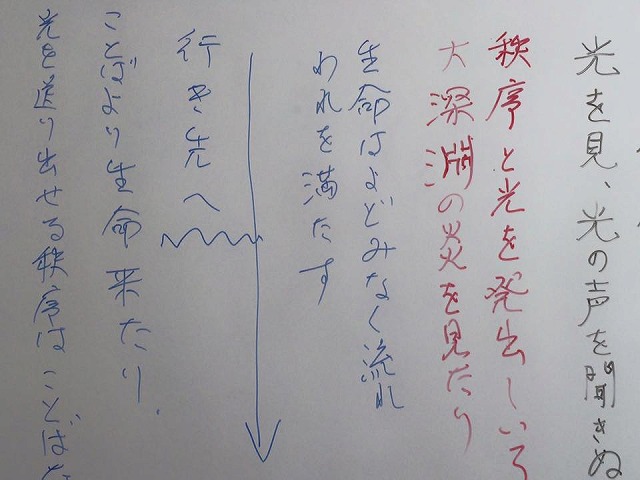 光を見、光の声を聞きぬ
秩序と光を発出しいる
大深淵の炎を見たり
生命はよどみなく流れ
われを満たす
行き先へ
ことばより生命来たり.
光を送り出せる秩序はことばな